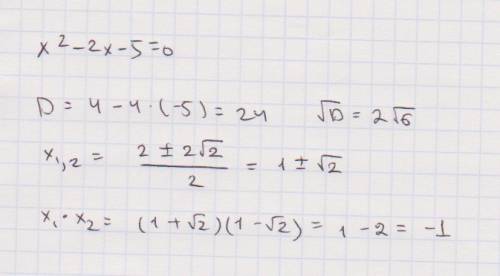 x² - 2x - 5 = 0
D = 4 - 4 · (-5) = 24 √D = 2√6
x₁,₂ = (2 ± 2√2)/2 = 1 ± √2
x₁ · x₂ = (1 + √2)(1 - √2) = 1 - 2 = -1